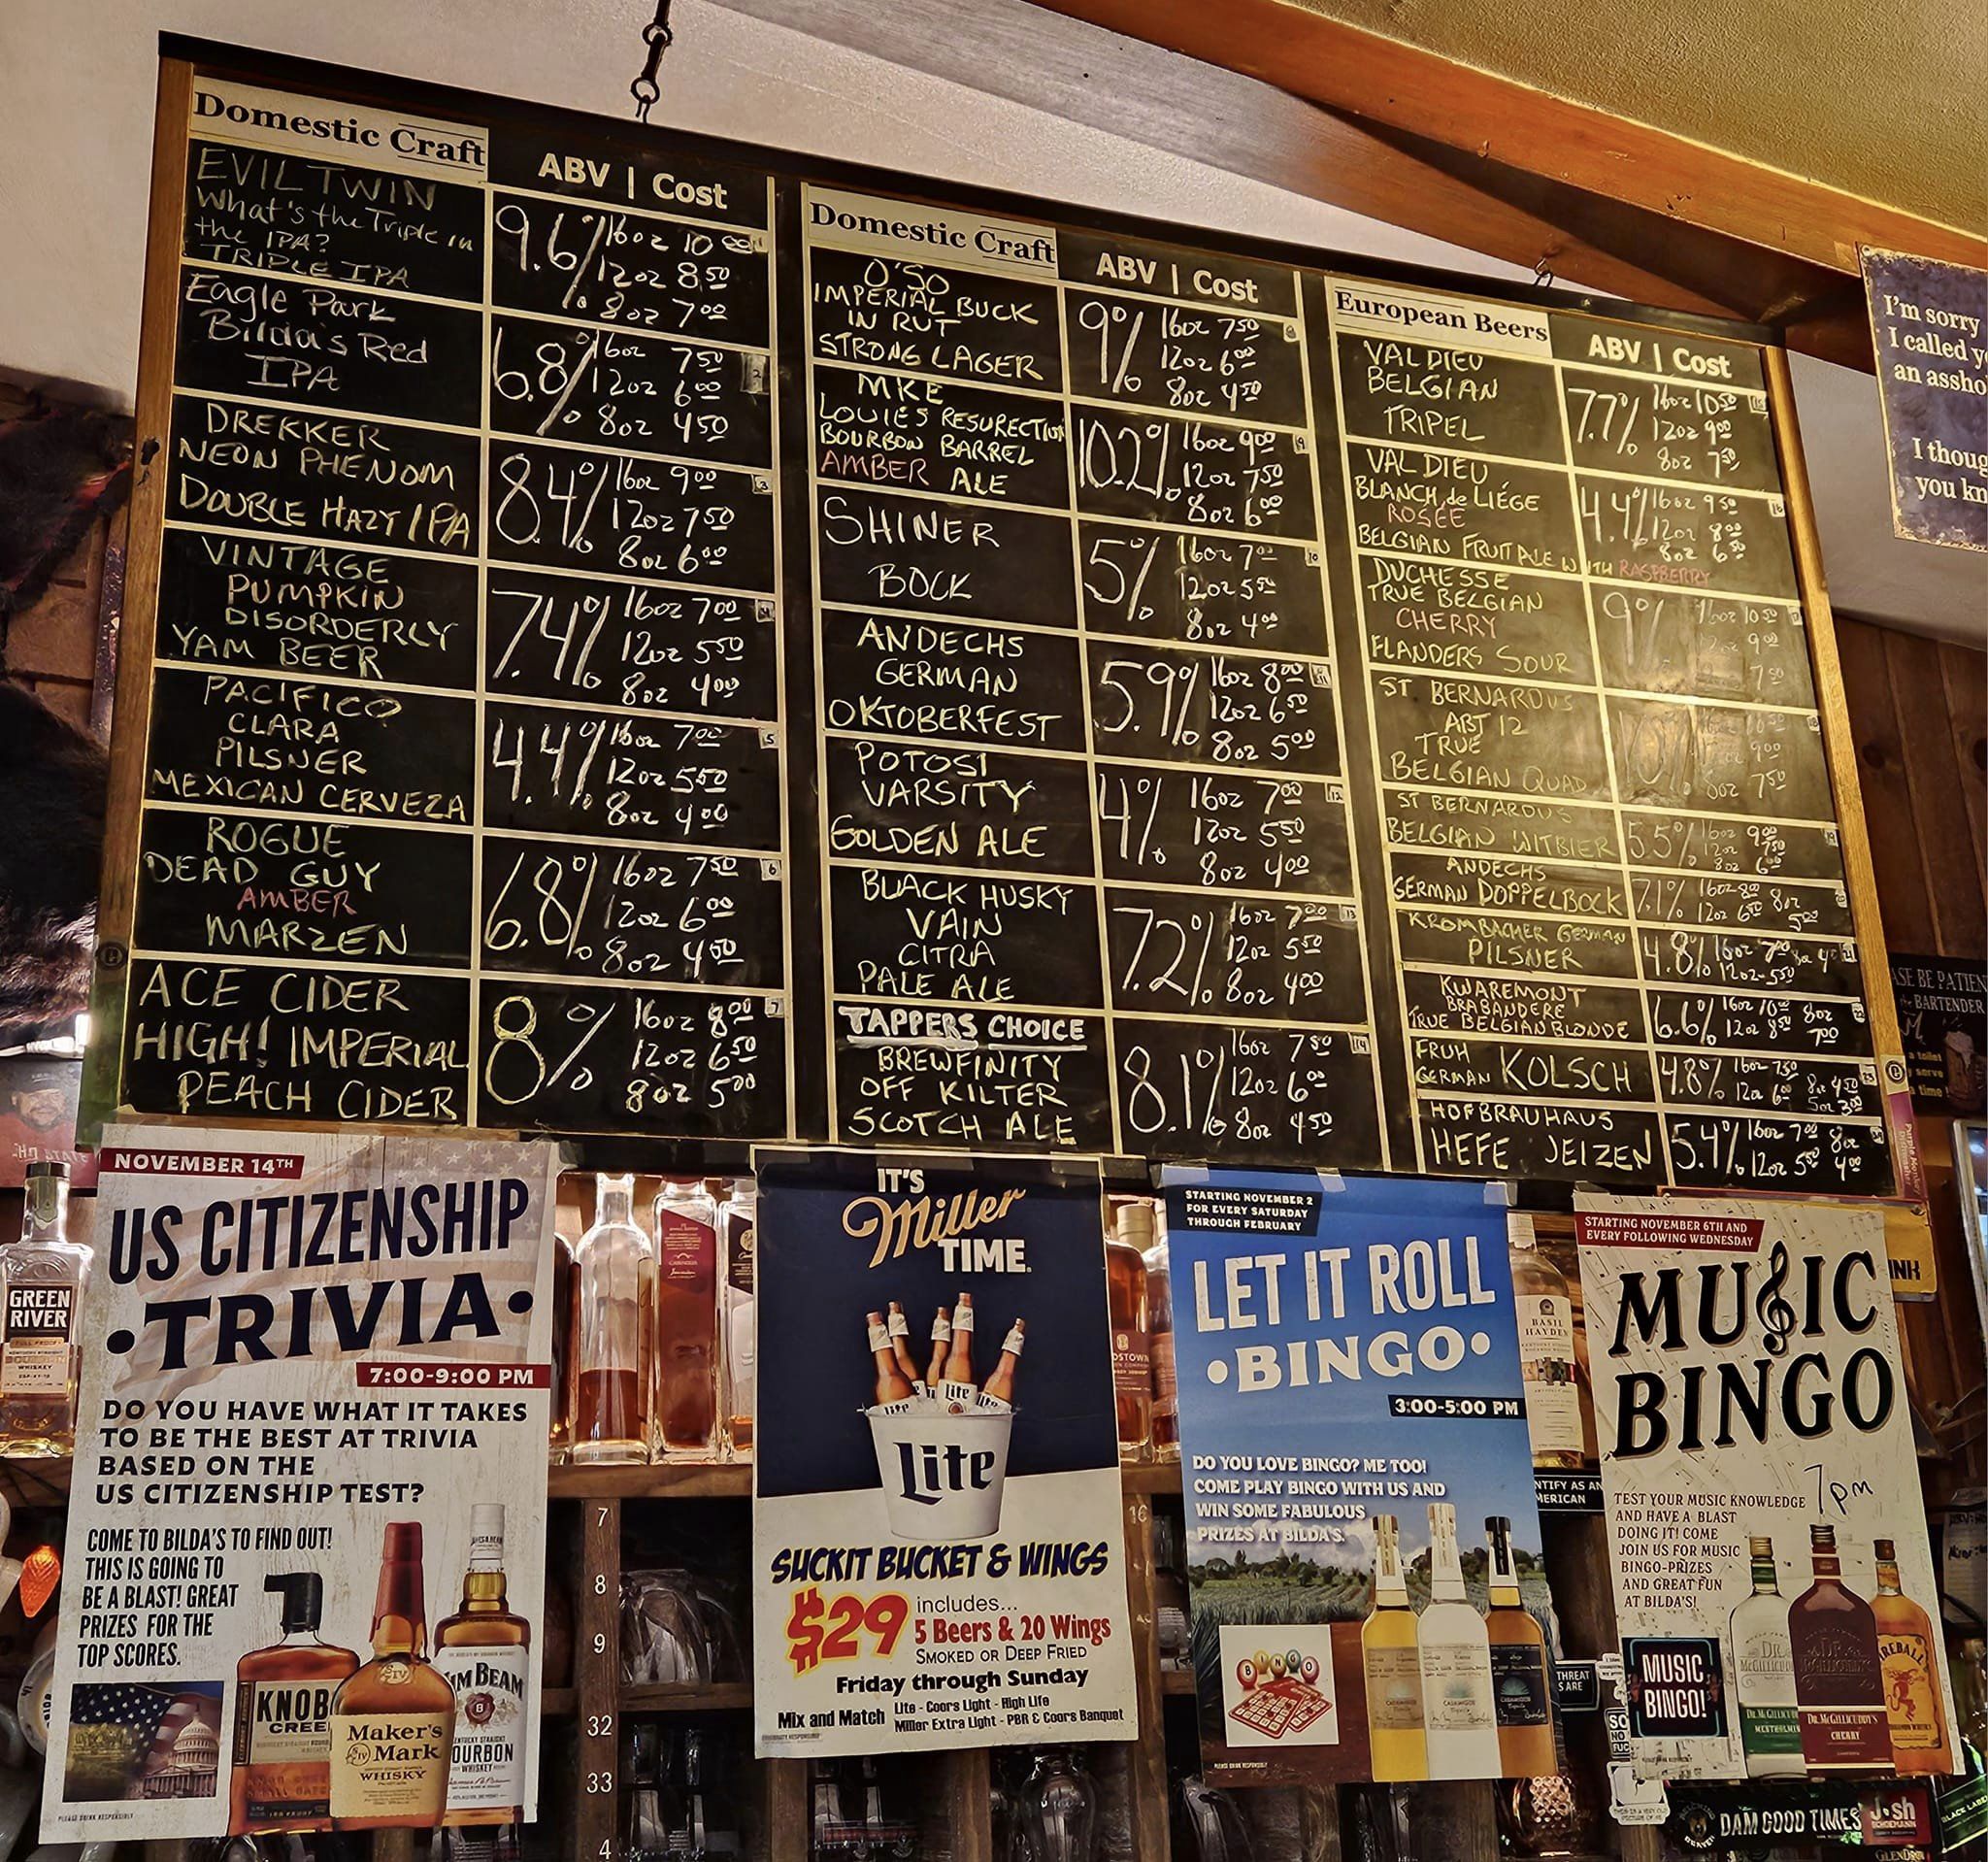 Domestic Craft
ABV | Cost
EVIL TWIN
What's the Triple in
the IPA?
TRIPLE IPA
9.6% 16oz 10 00
12oz 8 50
8oz 7 00
Eagle Park
Bilda's Red
IPA
6.8% 16oz 7 50
12oz 6 00
8oz 4 50
DREKKER
NEON PHENOM
DOUBLE HAZY IPA
8.4% 16oz 9 00
12oz 7 50
8oz 6 00
VINTAGE
PUMPKIN
DISORDERLY
YAM BEER
7.4% 16oz 7 00
12oz 5 50
8oz 4 00
PACIFICO
CLARA
PILSNER
MEXICAN CERVEZA
4.4% 16oz 7 00
12oz 5 50
8oz 4 00
ROGUE
DEAD GUY
AMBER
MARZEN
6.8% 16oz 7 50
12oz 6 00
8oz 4 50
ACE CIDER
HIGH! IMPERIAL
PEACH CIDER
8% 16oz 8 00
12oz 6 50
8oz 5 00
Domestic Craft
ABV | Cost
O'SO
IMPERIAL BUCK
IN RUT
STRONG LAGER
9% 16oz 7 50
12oz 6 00
8oz 4 50
MKE
LOUIES RESURECTION
BOURBON BARREL
AMBER ALE
10.2% 16oz 9 00
12oz 7 50
8oz 6 00
SHINER
BOCK
5% 16oz 7 00
12oz 5 50
8oz 4 00
ANDECHS
GERMAN
OKTOBERFEST
5.9% 16oz 8 00
12oz 6 50
8oz 5 00
POTOSI
VARSITY
GOLDEN ALE
4% 16oz 7 00
12oz 5 50
8oz 4 00
BLACK HUSKY
VAIN
CITRA
PALE ALE
7.2% 16oz 7 00
12oz 5 50
8oz 4 00
TAPPERS CHOICE
BREWFINITY
OFF KILTER
SCOTCH ALE
8.1% 16oz 7 50
12oz 6 00
8oz 4 50
European Beers
ABV | Cost
VAL DIEU
BELGIAN
TRIPEL
7.7% 16oz 10 50
12oz 9 00
8oz 7 50
VAL DIEU
BLANCH de LIÉGE
ROSEE
BELGIAN FRUIT ALE WITH RASPBERRY
4.4% 16oz 9 50
12oz 8 00
8oz 6 50
DUCHESSE
TRUE BELGIAN
CHERRY
FLANDERS SOUR
9% 16oz 10 50
12oz 9 00
7 50
ST BERNARDUS
ABT 12
TRUE
BELGIAN QUAD
10% 10 50
9 00
8oz 7 50
ST BERNARDUS
BELGIAN WITBIER
5.5% 16oz 9 00
12oz 7 50
8oz 6 00
ANDECHS
GERMAN DOPPELBOCK
7.1% 16oz 8 00 8oz
12oz 6 50 5 00
KROMBACHER GERMAN
PILSNER
4.8% 16oz 7 00 8oz 4 00
12oz 5 50
KWAREMONT
BRABANDERE
TRUE BELGIAN BLONDE
6.6% 16oz 10 00 8oz
12oz 8 50 7 00
FRUH
GERMAN KOLSCH
4.8% 16oz 7 50 8oz 4 50
12oz 6 00 5oz 3 00
HOFBRAUHAUS
HEFE JEIZEN
5.4% 16oz 7 00 8oz
12oz 5 50 4 00
I'm sorry
I called
an assho
I thoug
you kn
ASE BE PATIEN
BARTENDER
NOVEMBER 14TH
US CITIZENSHIP
•TRIVIA•
7:00-9:00 PM
DO YOU HAVE WHAT IT TAKES
TO BE THE BEST AT TRIVIA
BASED ON THE
US CITIZENSHIP TEST?
COME TO BILDA'S TO FIND OUT!
THIS IS GOING TO
BE A BLAST! GREAT
PRIZES FOR THE
TOP SCORES.
KNOB
CREE
Maker's
Mark
WHISKY
IM BEAM
KENTUCKY STRAIGHT
BOURBON
WHISKEY
PLEASE DRINK RESPONSIBLY
GREEN
RIVER
WHISKEY
IT'S
Miller
TIME
Lite
Lite
SUCKIT BUCKET & WINGS
$29 includes...
5 Beers & 20 Wings
SMOKED OR DEEP FRIED
Friday through Sunday
Mix and Match
Lite - Coors Light - High Life
Miller Extra Light - PBR & Coors Banquet
7
8
9
32
33
4
16
STARTING NOVEMBER 2
FOR EVERY SATURDAY
THROUGH FEBRUARY
LET IT ROLL
•BINGO•
3:00-5:00 PM
DO YOU LOVE BINGO? ME TOO!
COME PLAY BINGO WITH US AND
WIN SOME FABULOUS
PRIZES AT BILDA'S.
BINGO
PLEASE DRINK RESPONSIBLY
BASIL
HAYDEN
NTIFY AS AN
MERICAN
THREAT
S ARE
STARTING NOVEMBER 6TH AND
EVERY FOLLOWING WEDNESDAY
MUSIC
BINGO
7pm
TEST YOUR MUSIC KNOWLEDGE
AND HAVE A BLAST
DOING IT! COME
JOIN US FOR MUSIC
BINGO-PRIZES
AND GREAT FUN
AT BILDA'S!
MUSIC
BINGO!
DR. McGILLICUDDY'S
CHERRY
FIREBALL
DAM GOOD TIMES
Josh